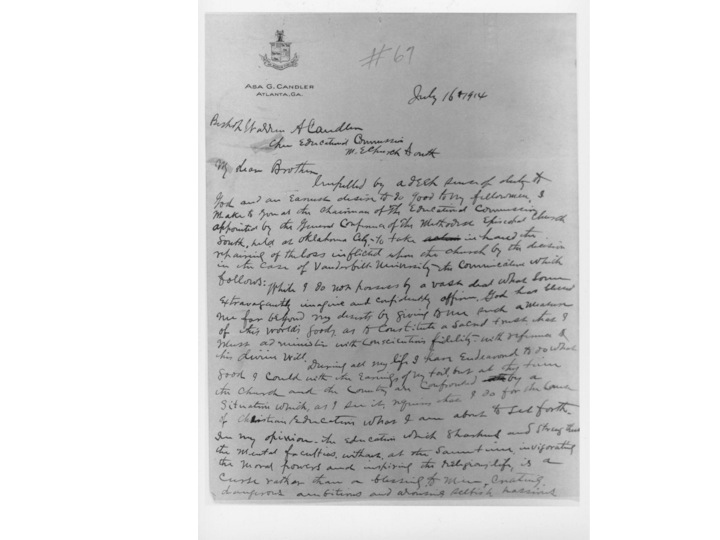 #69
ASA G. CANDLER
ATLANTA, GA.
July 16th 1914
Bishop Warren A Candler
Chm Educational Commission
M. E. Church South
My dear Brother,
Impelled by a deep sense of duty to
God and an earnest desire to do good to my fellowmen, I
make to you as the Chairman of the Educational Commission
appointed by the General Conference of the Methodist Episcopal Church
South, held at Oklahoma City, to take in hand the
repairing of the loss inflicted upon the Church by the decision
in the Case of Vanderbilt University the Communication which
follows:
While I do not possess by a vast deal what some
extravagantly imagine and confidently affirm, God has blessed
me far beyond my deserts by giving to me such a measure
of this worlds goods as to Constitute a Sacred trust that I
must administer with Conscientious fidelity with reference to
his divine will.
During all my life I have endeavored to do what
good I could with the earnings of my toil, but at this time
the Church and the Country are confronted by a
Situation which, as I see it, requires that I do for the cause
of Christian Education what I am about to set forth.
In my opinion the education which sharpens and strengthens
the mental faculties without at the same time invigorating
the moral powers and inspiring the religious life, is a
curse rather than a blessing to men, creating
dangerous ambitions and arousing selfish passions